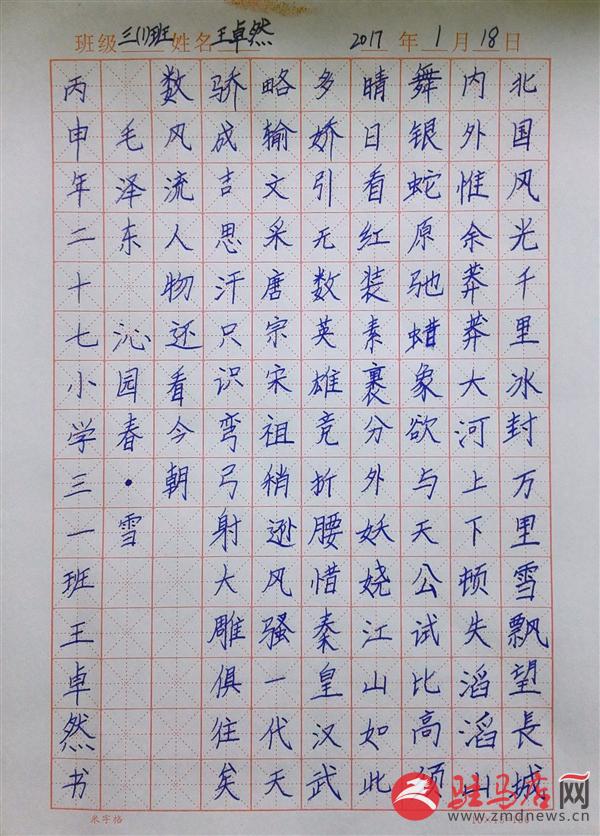 班级 三(1)班 姓名 王卓然 2017 年 1 月 18 日
北国风光千里冰封万里雪飘望長城
内外惟余莽莽大河上下顿失滔滔山
舞银蛇原驰蜡象欲与天公试比高须
晴日看红装素裹分外妖娆江山如此
多娇引无数英雄竞折腰惜秦皇汉武
略输文采唐宗宋祖稍逊风骚一代天
骄成吉思汗只识弯弓射大雕俱往矣
数风流人物还看今朝
毛泽东 沁园春·雪
丙申年二十七小学三一班王卓然书
米字格
驻马店网
www.zmdnews.cn